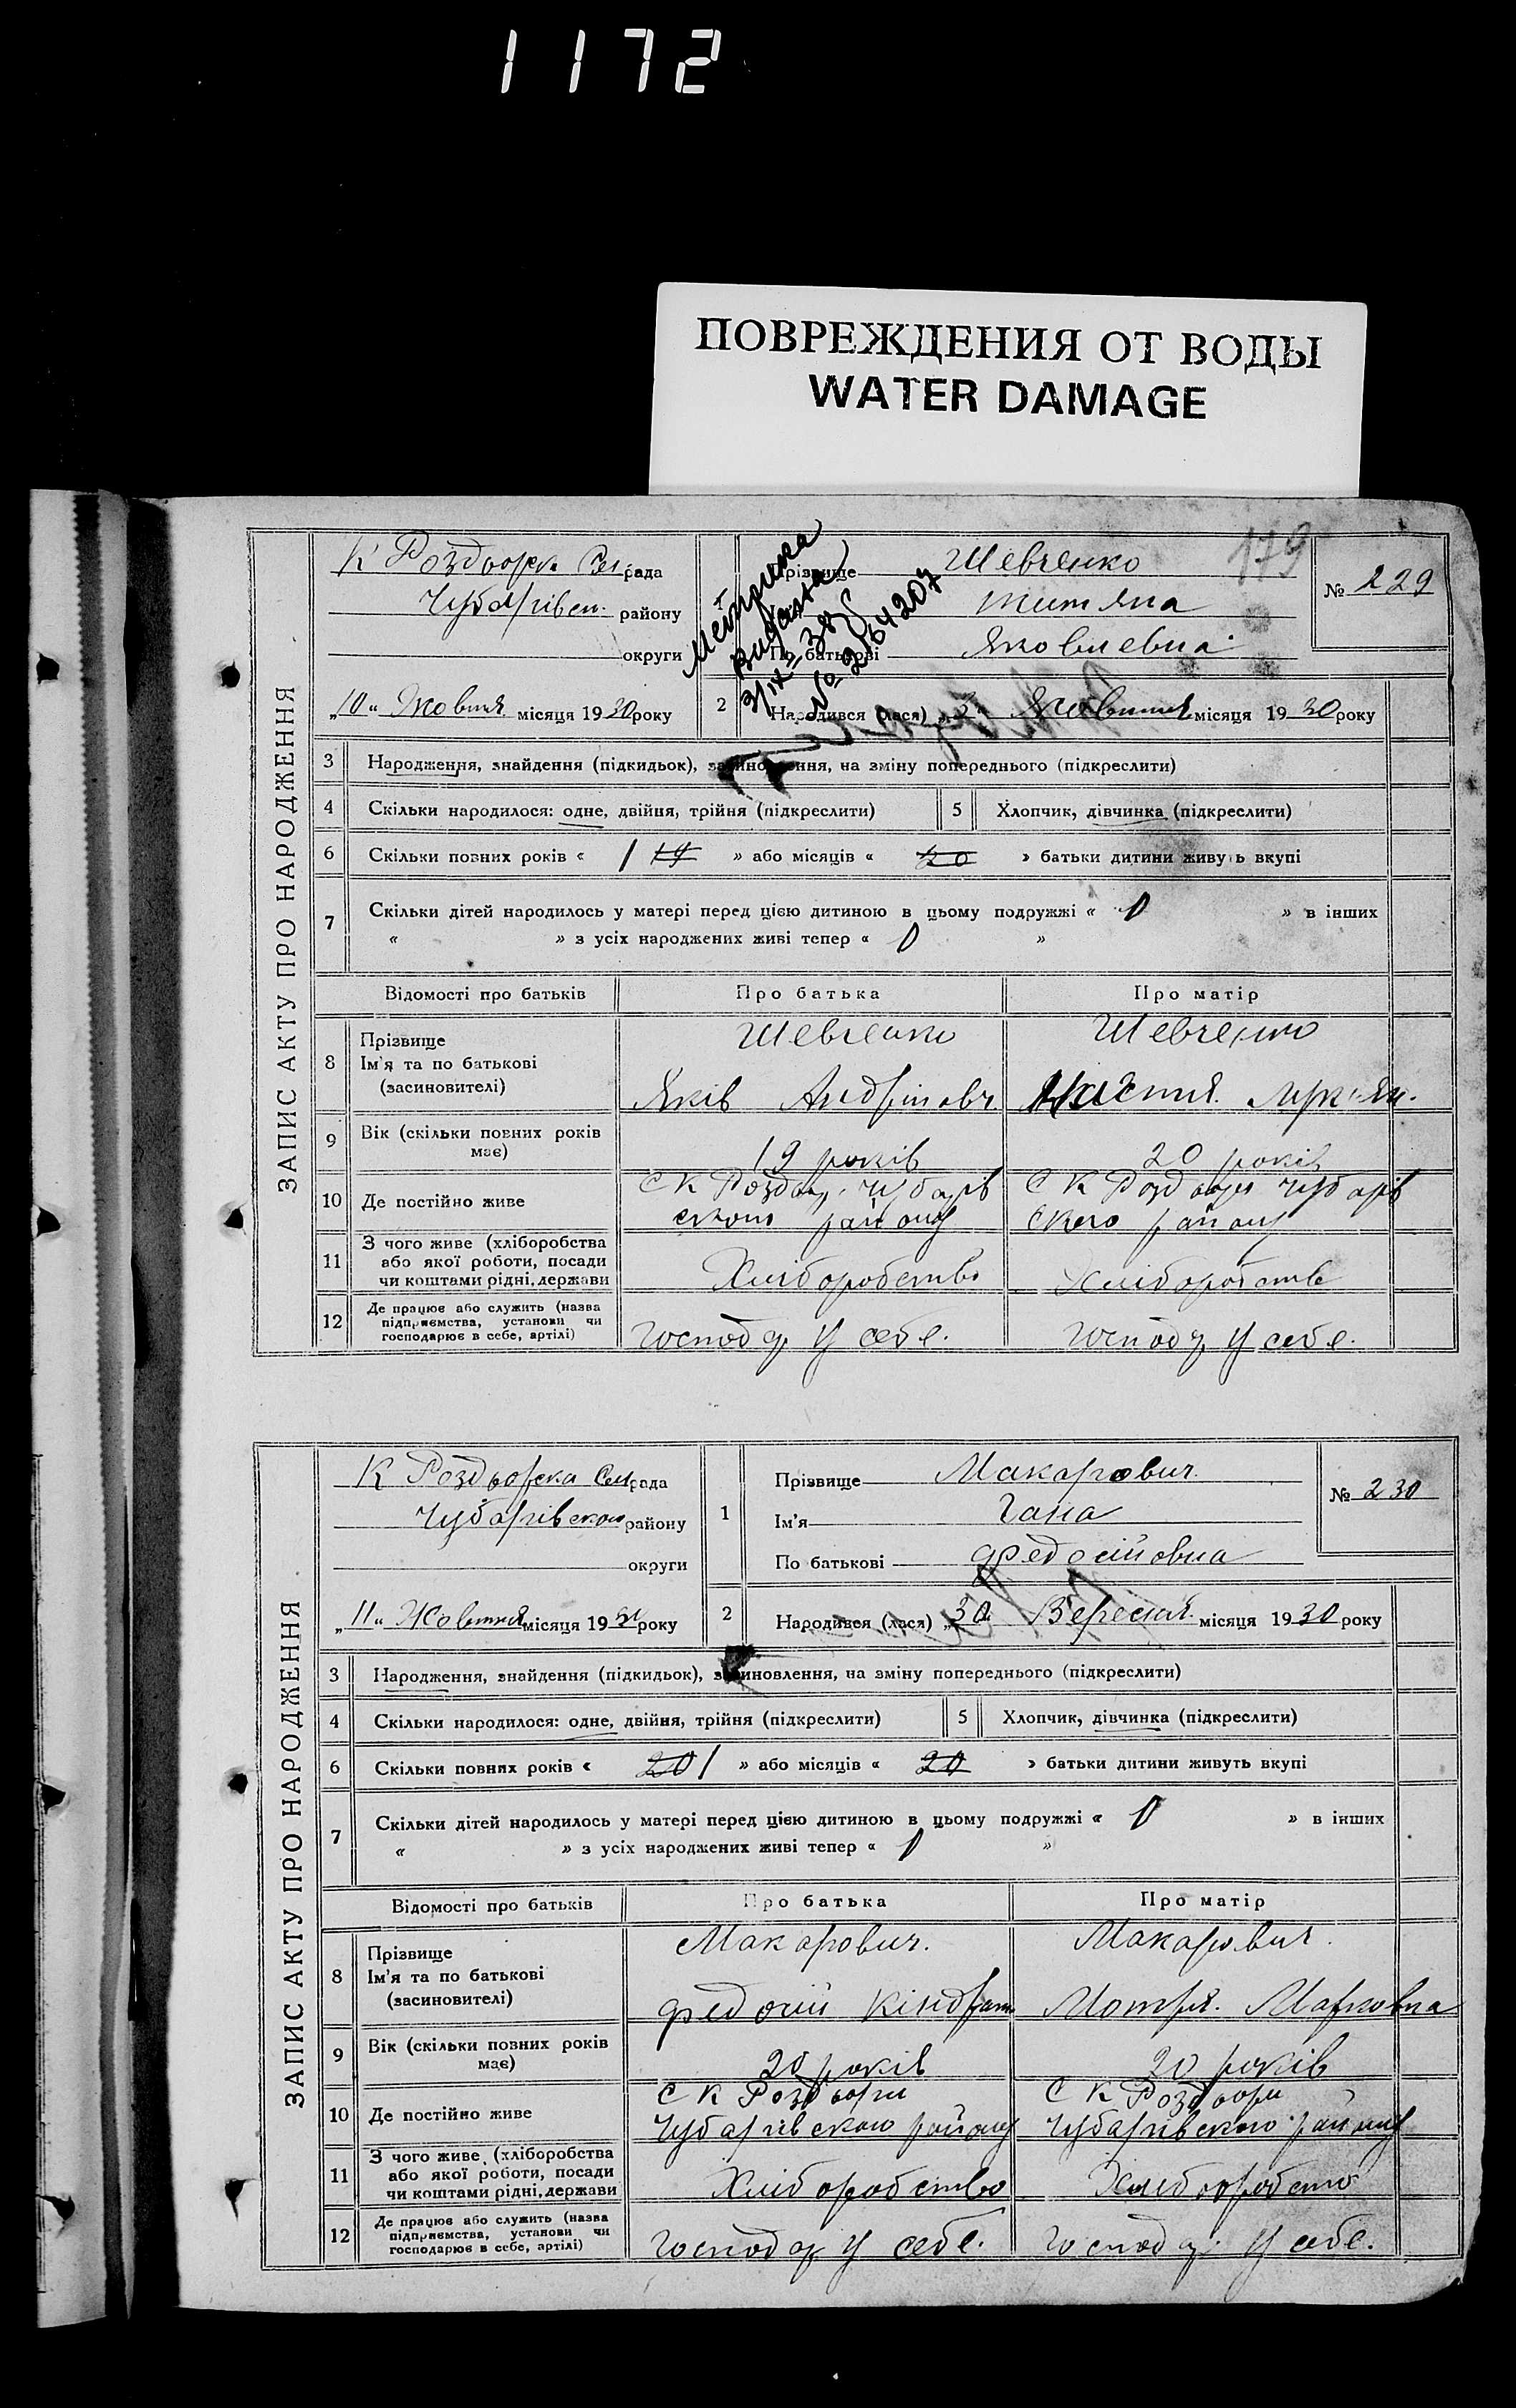 1172
ПОВРЕЖДЕНИЯ ОТ ВОДЫ
WATER DAMAGE
179
ЗАПИС АКТУ ПРО НАРОДЖЕННЯ
К Роздорська Сел рада
Чубарівськ. району
округи
„10“ Жовтня місяця 1930 року
Метрика
видана
№ 2164207
Прізвище Шевченко
титяна
По батькові Яковлевна
№ 229
2 Народився (лася) „2“ Жовтня місяця 1930 року
3 Народження, знайдення (підкидьок), засиновлення, на зміну попереднього (підкреслити)
4 Скільки народилося: одне, двійня, трійня (підкреслити)
5 Хлопчик, дівчинка (підкреслити)
6 Скільки повних років « 1 19 » або місяців « 20 » батьки дитини живуть вкупі
7 Скільки дітей народилось у матері перед цією дитиною в цьому подружжі « 0 » в інших
« » з усіх народжених живі тепер « 0 »
Відомості про батьків Про батька Про матір
8 Прізвище Шевченко Шевченко
Ім'я та по батькові
(засновителі) Яків Андрійовч
9 Вік (скільки повних років
має) 19 років 20 років
10 Де постійно живе С К Роздор. Чубарів С К Роздори Чубарів
ського району ского району
11 З чого живе (хліборобства
або якої роботи, посади
чи коштами рідні, держави Хліборобство Хліборобств
12 Де працює або служить (назва
підприємства, установи чи
господарює в себе, артілі) Господ у себе. Господ у себе.
ЗАПИС АКТУ ПРО НАРОДЖЕННЯ
К Роздорська Сел рада
Чубарівського району
округи
„11“ Жовтня місяця 1930 року
1 Прізвище Макарович
Ім'я Гана
По батькові Федосійовна
№ 230
2 Народився (лася) „30 Вересня місяця 1930 року
3 Народження, знайдення (підкидьок), засиновлення, на зміну попереднього (підкреслити)
4 Скільки народилося: одне, двійня, трійня (підкреслити)
5 Хлопчик, дівчинка (підкреслити)
6 Скільки повних років « 20 1 » або місяців « 20 » батьки дитини живуть вкупі
7 Скільки дітей народилось у матері перед цією дитиною в цьому подружжі « 0 » в інших
« » з усіх народжених живі тепер « 0 »
Відомості про батьків Про батька Про матір
8 Прізвище Макарович. Макарович.
Ім'я та по батькові
(засиновителі) Федосій Кіндрат Мотря. Марковна
9 Вік (скільки повних років
має) 20 років 20 років
10 Де постійно живе С К Роздори С К Роздори
Чубарівского району Чубарівского району
11 З чого живе (хліборобства
або якої роботи, посади
чи коштами рідні, держави Хліборобство Хліборобство
12 Де працює або служить (назва
підприємства, установи чи
господарює в себе, артілі) Господ у себе. Господ у себе.